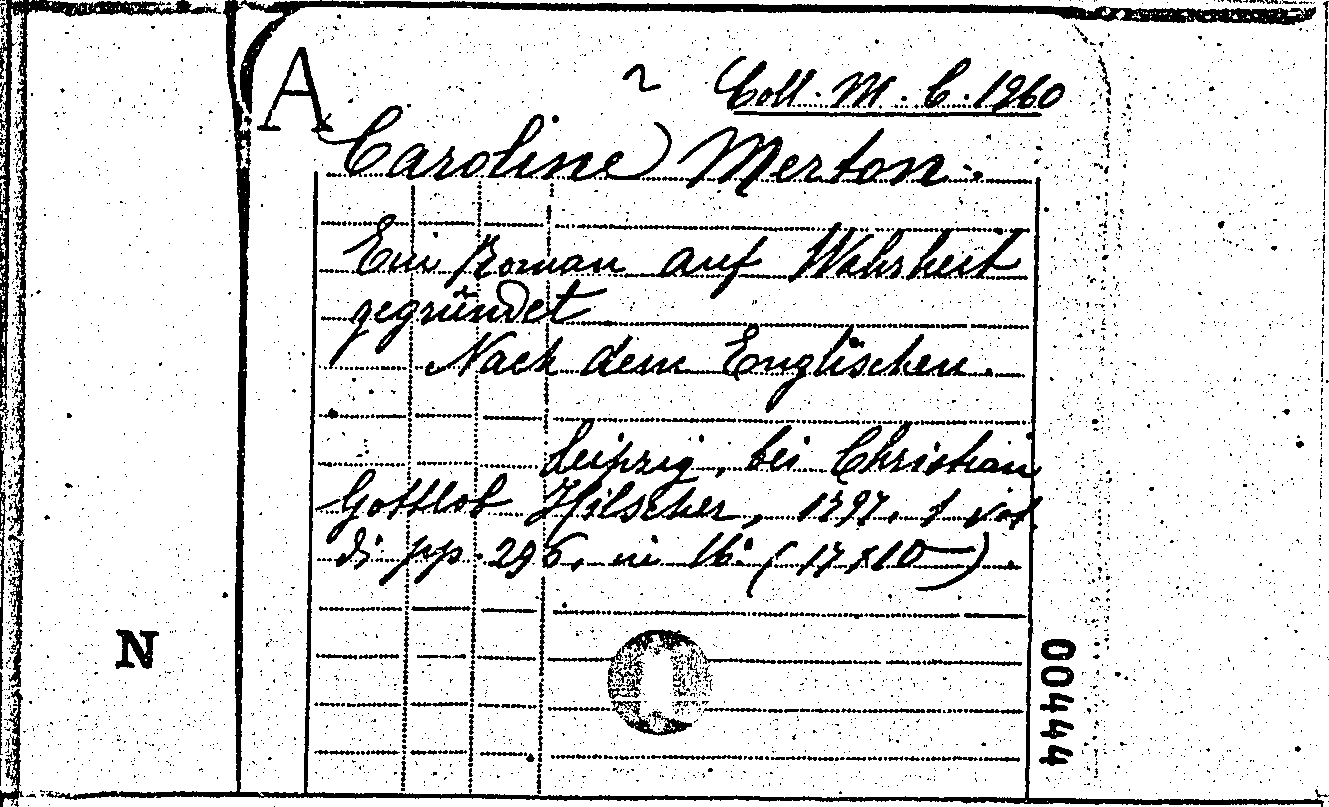 A
~ Coll. M. C. 1960
Caroline Merton.
Ein Roman auf Wahrheit
gegründet
Nach dem Englischen.
Leipzig, bei Christian
Gottlob Hilscher, 1797. 1 vol.
di pp. 296, in 16.° (17x10).
N
00444